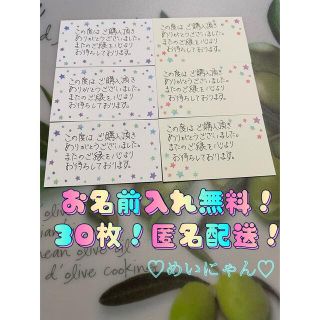 この度は ご購入頂き
ありがとうございました。
またのご縁を心より
お待ちしております。
この度は ご購入頂き
ありがとうございました。
またのご縁を心より
お待ちしております。
この度は ご購入頂き
ありがとうございました。
またのご縁を心より
お待ちしております。
この度は ご購入頂き
ありがとうございました。
またのご縁を心より
お待ちしております。
この度は ご購入頂き
ありがとうございました。
またのご縁を心より
お待ちしております。
この度は ご購入頂き
ありがとうございました。
またのご縁を心より
お待ちしております。
お名前入れ無料!
30枚!匿名配送!
♡めいにゃん♡
olive
ean olive
d'olive cooking